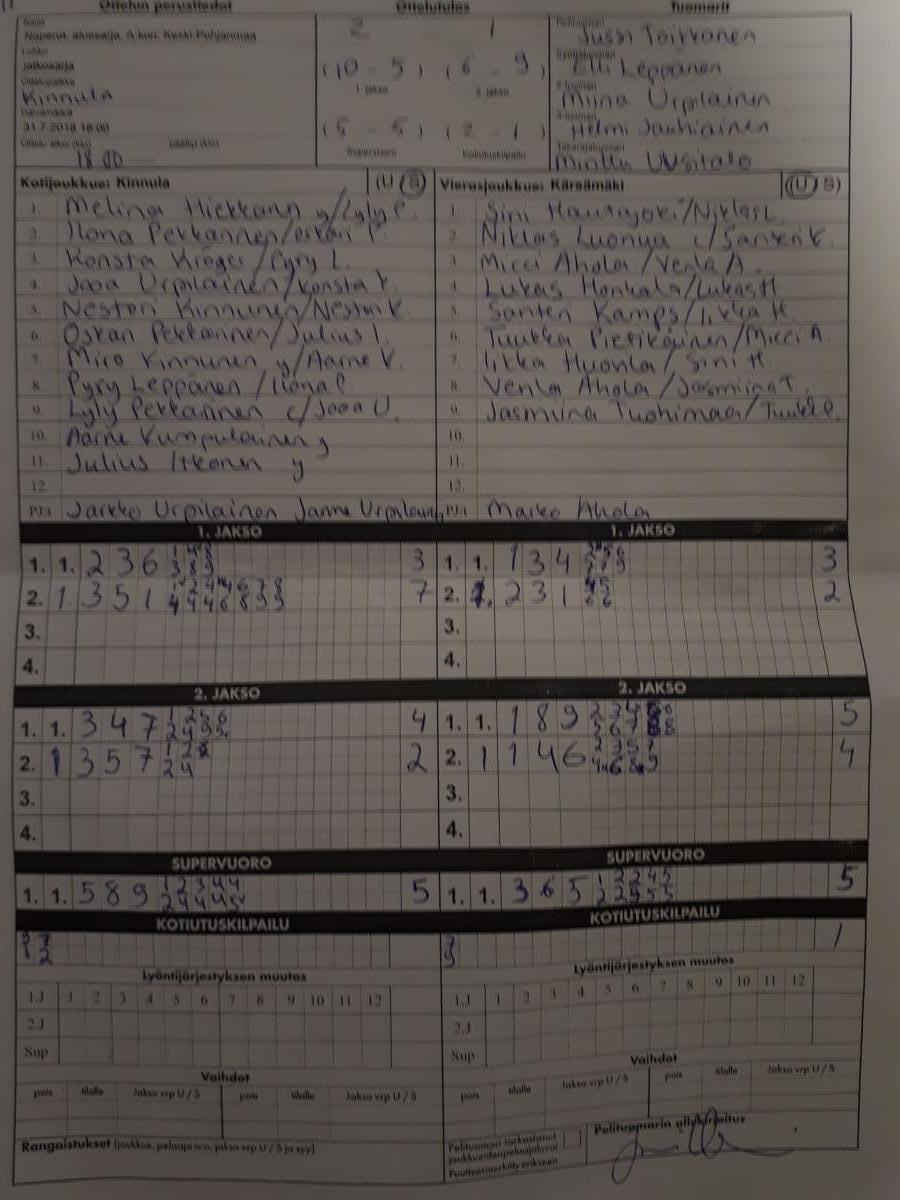 Ottelun perustiedot Ottelutulos Tuomarit
Sarja
Naperot, aluesarja, A-kori, Keski-Pohjanmaa
Lohko
jatkosarja
Ottelupaikka
Kinnula
Päivämäärä
31.7.2018 18:00
Ottelu alkoi (klo) päättyi (klo)
18.00
2 1
(10 - 5) (6 - 9)
1. jakso 2. jakso
(5 - 5) (2 - 1)
Supervuoro Kotiutuskilpailu
Pelituomari
Jussi Toikkanen
Syöttötuomari
Elli Leppänen
2-tuomari
Miina Urpilainen
3-tuomari
Helmi Jauhiainen
Takarajatuomari
Minttu Uusitalo
Kotijoukkue: Kinnula (U S) Vierasjoukkue: Kärsämäki (U S)
1. Melina Hiekkann y/Lyly P. 1. Sini Hautajoki/Niklas L.
2. Ilona Pekkarinen/Oskari P. 2. Niklas Luonua c/Santeri K.
3. Konsta Kröger/Pyry L. 3. Micci Ahola/Venla A.
4. Jooa Urpilainen/Konsta K. 4. Lukas Honkala/Lukas H.
5. Nestori Kinnunen/Nestori K. 5. Santeri Kamps/Iikka H.
6. Oskari Pekkarinen/Julius I. 6. Tuukka Pietikäinen/Micci A.
7. Miro Kinnunen y/Aarne K. 7. Iikka Huovila/Sini H.
8. Pyry Leppänen/Ilona P. 8. Venla Ahola/Jasmiina T.
9. Lyly Pekkarinen c/Jooa U. 9. Jasmiina Tuohimaa/Tuukka P.
10. Aarne Kumpulainen y 10.
11. Julius Itkonen y 11.
12. 12.
PJ:t Jarkko Urpilainen Janne Urpilainen PJ:t Marko Ahola
1. JAKSO 1. JAKSO
1. 1. 2 3 6 3 1. 1. 1 3 4 3
2. 1 3 5 1 7 2. 2 3 1 2
3. 3.
4. 4.
2. JAKSO 2. JAKSO
1. 1. 3 4 7 4 1. 1. 1 8 9 5
2. 1 3 5 7 2 2. 1 1 4 6 4
3. 3.
4. 4.
SUPERVUORO SUPERVUORO
1. 1. 5 8 9 5 1. 1. 3 6 5 5
KOTIUTUSKILPAILU KOTIUTUSKILPAILU
1
Lyöntijärjestyksen muutos Lyöntijärjestyksen muutos
1.J 1 2 3 4 5 6 7 8 9 10 11 12 1.J 1 2 3 4 5 6 7 8 9 10 11 12
2.J 2.J
Sup Sup
Vaihdot Vaihdot
pois tilalle Jakso vrp U / S pois tilalle Jakso vrp U / S pois tilalle Jakso vrp U / S pois tilalle Jakso vrp U / S
Rangaistukset (joukkue, pelaaja nro, jakso vrp U / S ja syy)
Pelituomari tarkastanut
joukkueidenpelaajaluvat
Puutteetmerkitty erikseen
Pelituomarin allekirjoitus